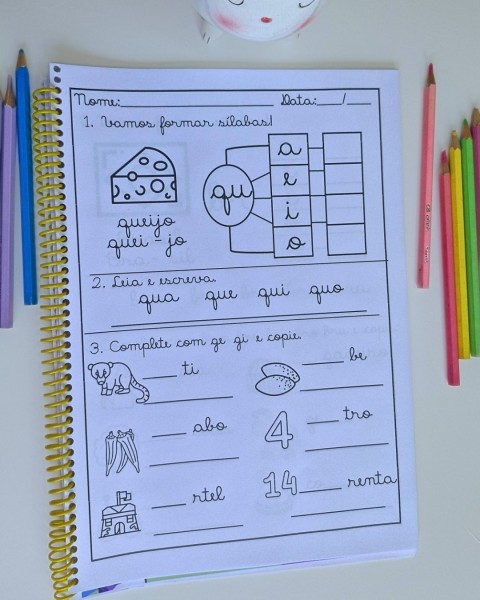 Nome:____________________ Data:___/___
1. Vamos formar sílabas!
queijo
quei - jo
qu
a
e
i
o
2. Leia e escreva.
qua que qui quo
3. Complete com ge gi e copie.
____ ti
____ be
____ abo
4 ____ tro
____ rtel
14 ____ renta